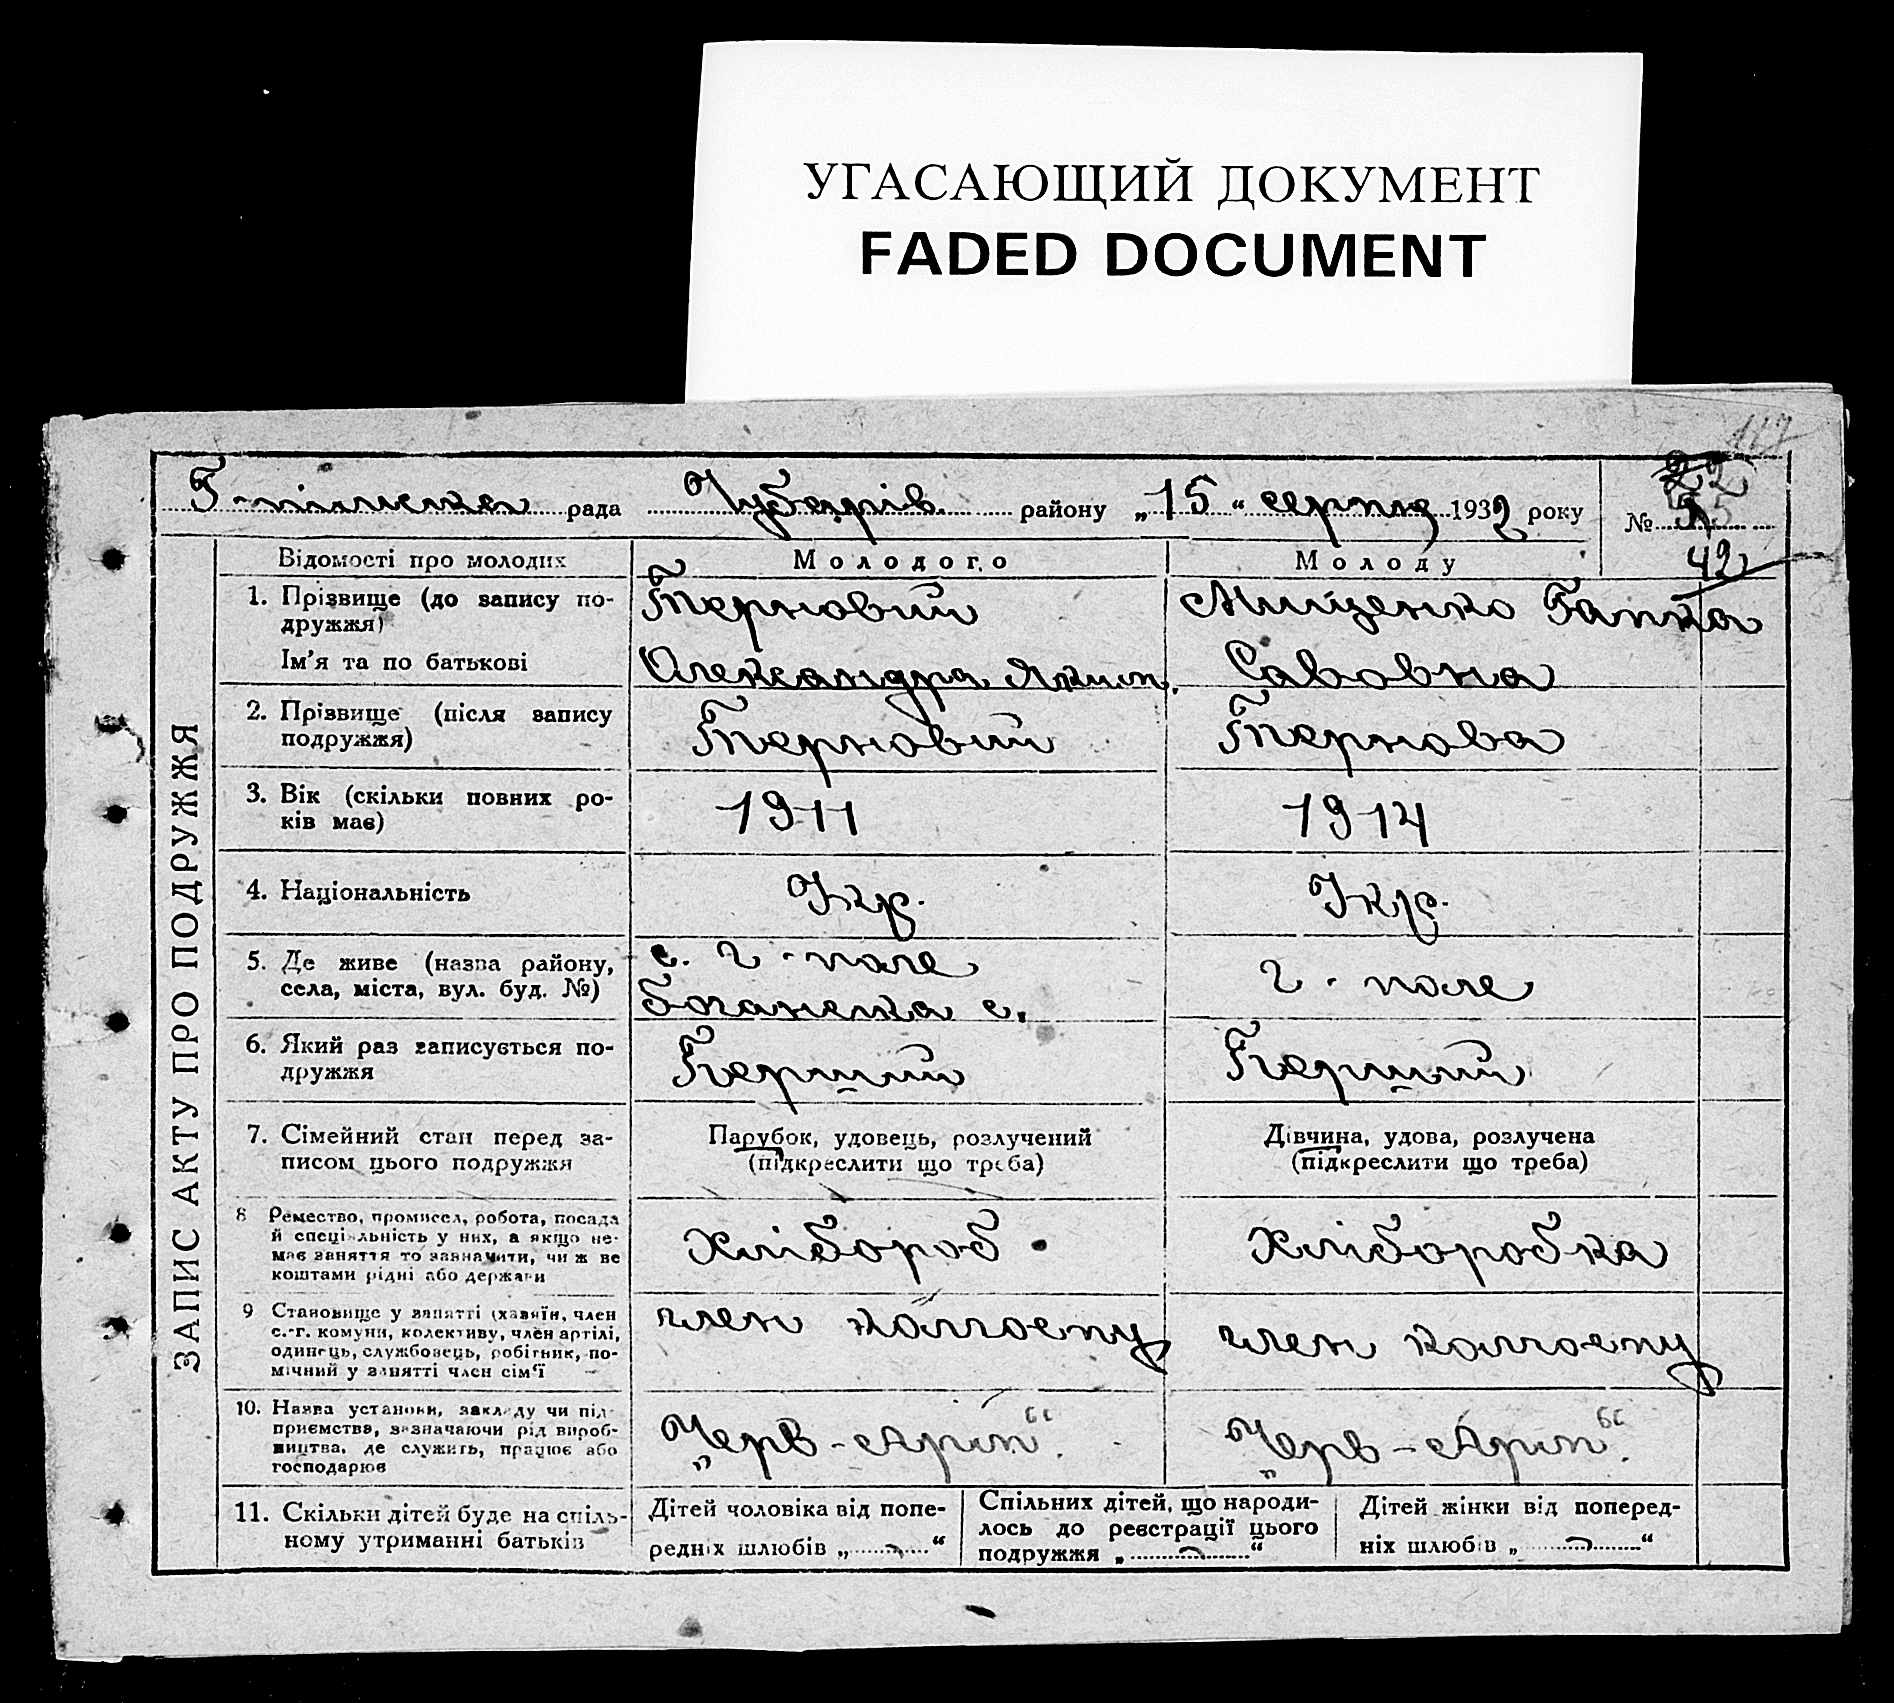 УГАСАЮЩИЙ ДОКУМЕНТ
FADED DOCUMENT
117
22
Г-пільська рада Чубарів. району „15“ серпня 1932 року № 5
42
ЗАПИС АКТУ ПРО ПОДРУЖЖЯ
Відомості про молодих Молодого Молоду
1. Прізвище (до запису по-
дружжя)
Ім'я та по батькові
Терновий
Олександра Яким.
Мищенко Ганка
Савовна
2. Прізвище (після запису
подружжя)
Терновий
Тернова
3. Вік (скільки повних ро-
ків має)
1911
1914
4. Національність
Укр.
Укр.
5. Де живе (назва району,
села, міста, вул. буд. №)
с. Г-поле
с.
Г-поле
6. Який раз записується по-
дружжя
Перший
Перший
7. Сімейний стан перед за-
писом цього подружжя
Парубок, удовець, розлучений
(підкреслити що треба)
Дівчина, удова, розлучена
(підкреслити що треба)
8 Ремество, промисел, робота, посада
й спеціяльність у них, а якщо не-
має заняття то зазначити, чи ж ве
коштами рідні або держави
Хлібороб
Хліборобка
9 Становище у занятті (хазяїн, член
с.-г. комуни, колективу, член артілі,
одинець, службовець, робітник, по-
мічний у занятті член сім'ї
член колгоспу
член колгоспу
10. Назва установи, закладу чи під-
приємства, зазначаючи рід вироб-
ництва, де служить, працює або
господарює
„Черв-Арміі“.
„Черв-Арміі“.
11. Скільки дітей буде на спіль-
ному утриманні батьків
Дітей чоловіка від попе-
редніх шлюбів „ “
Спільних дітей, що народи-
лось до реєстрації цього
подружжя „ “
Дітей жінки від поперед-
ніх шлюбів „ “